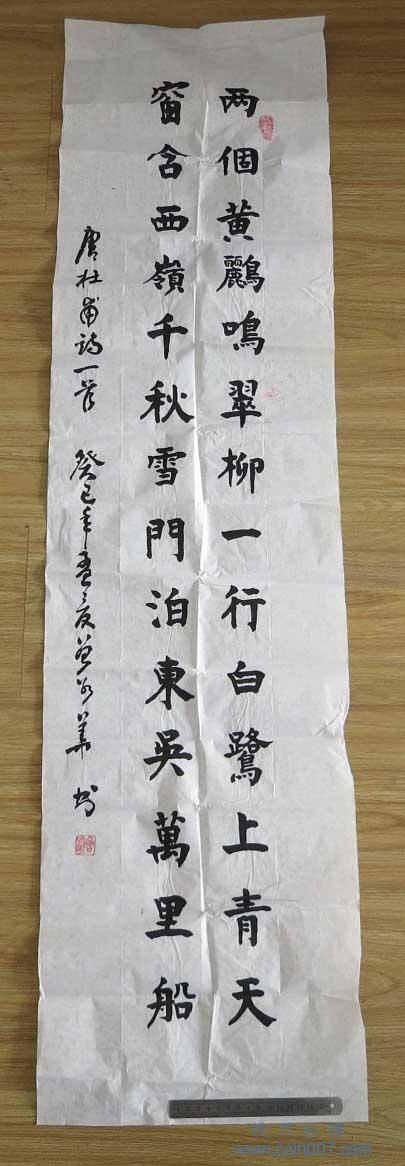 两個黃鸝鳴翠柳一行白鷺上青天
窗含西嶺千秋雪門泊東吳萬里船
唐杜甫詩一首 癸巳年孟夏曾 華書
www.coin007.com